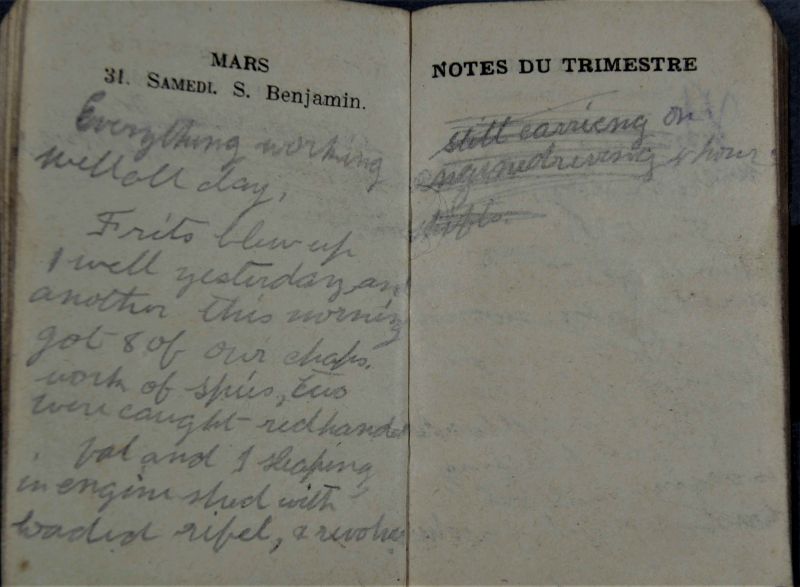 MARS
31. SAMEDI. S. Benjamin.
Everything working
well all day.
Frits blew up
1 well yesterday an
another this morning
got 8 of our chaps.
work of spies, two
were caught redhanded
Pat and I sleaping
in engine shed with
loaded rifel, & revolver
NOTES DU TRIMESTRE
still carrieng on
enginedriveing 8 hour
shifts.